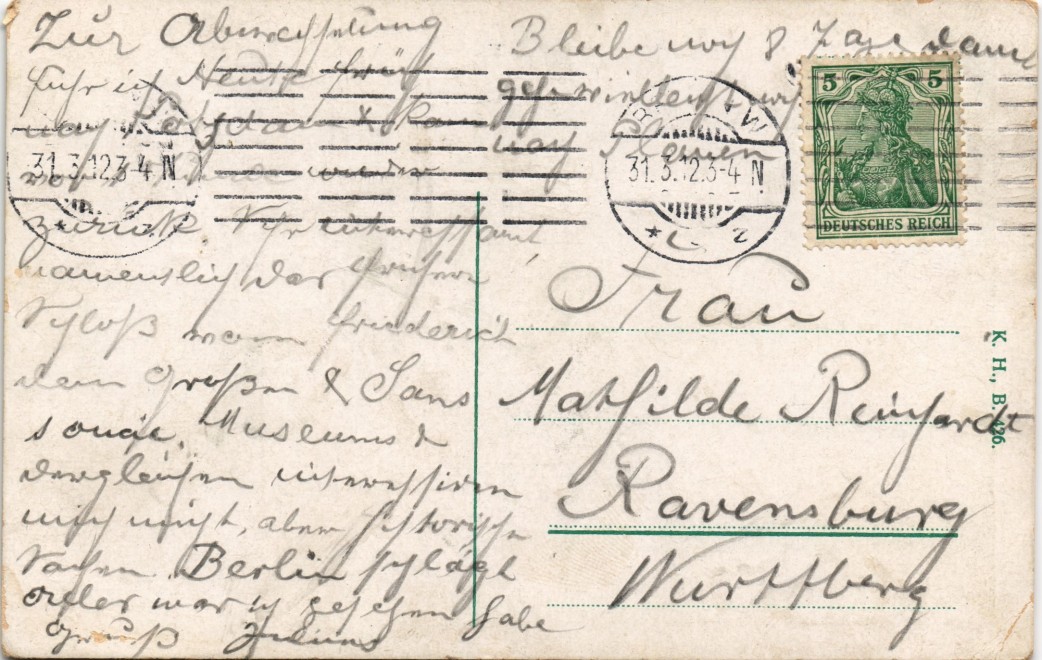 Zur Abwechselung
fuhr ich Heute früh
nach Potsdam & kam
wieder
zurück. Sehr interessant
namentlich das frühere
Schloß vom Friederich
dem Großen & Sans
souçie. Museums &
dergleichen interessiren
mich nicht, aber historische
Sachen. Berlin schlägt
alles was ich gesehen habe
Gruß Julius
Bleibe noch 8 Tage dann
geh vielleicht noch
nach Plauen
31.3.12.3-4 N
31.3.12.3-4 N
5 5
DEUTSCHES REICH
Frau
Mathilde Reinhardt
Ravensburg
Württberg
K. H., B. 426.